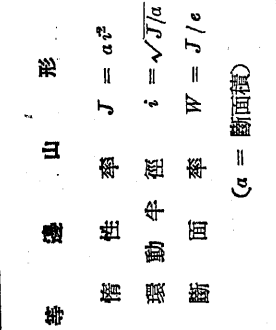 等邊山形
惰性率 J = ai²
環動半徑 i = √J/a
斷面率 W = J/e
(a = 斷面積)